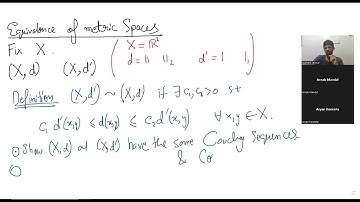 Equivalence of metric Spaces
Fix X.
(X,d) (X,d') ( X = ℝ² d = || ||₂ d' = | |₁ )
Definition (X,d') ~ (X,d) if ∃ c₁,c₂>0 st
c₁ d'(x,y) ≤ d(x,y) ≤ c₂ d'(x,y) ∀ x,y ∈ X.
Show (X,d) and (X,d') have the same Cauchy Sequences
& Co
Arnab Mandal